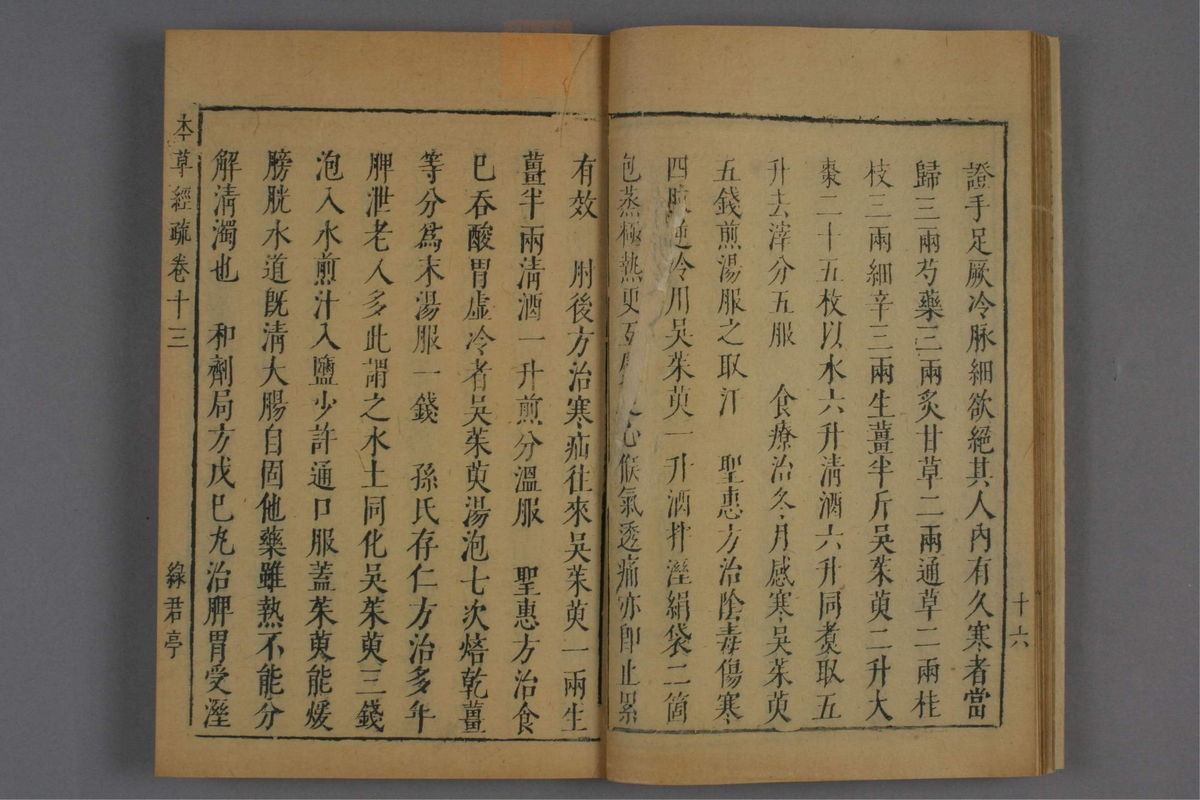 十六
證手足厥冷脉細欲絕其人內有久寒者當
歸三兩芍藥三兩炙甘草二兩通草二兩桂
枝三兩細辛三兩生薑半斤吳茱萸二升大
棗二十五枚以水六升清酒六升同煑取五
升去滓分五服　食療治冬月感寒吳茱萸
五錢煎湯服之取汗　聖惠方治陰毒傷寒
四肢逆冷用吳茱萸一升酒拌溼絹袋二箇
包蒸極熱更互心候氣透痛亦卽止累
有效　肘後方治寒疝往來吳茱萸一兩生
薑半兩清酒一升煎分溫服　聖惠方治食
巳吞酸胃虛冷者吳茱萸湯泡七次焙乾薑
等分爲末湯服一錢　孫氏存仁方治多年
脾泄老人多此謂之水土同化吳茱萸三錢
泡入水煎汁入鹽少許通口服蓋茱萸能煖
膀胱水道旣清大腸自固他藥雖熱不能分
解清濁也　和劑局方戊巳丸治脾胃受溼
本草經疏卷十三
綠君亭